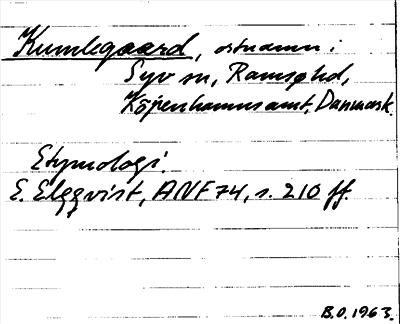 Kumlegaard, ortnamn i
Syv sn, Ramsø hd,
Köpenhamnsamt, Danmark.
Etymologi.
E. Elgqvist, ANF 74, s. 210 ff.
B.O. 1963.